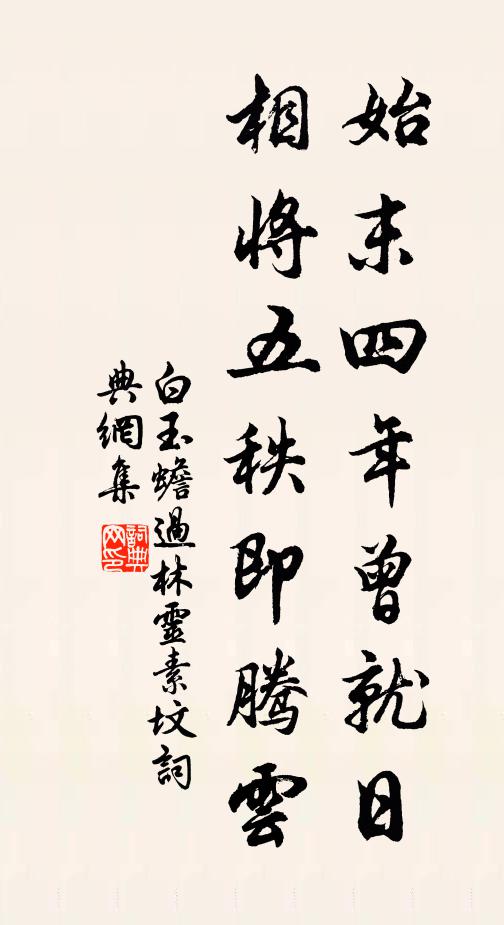 始末四年曾就日
相將五秩即騰雲
白玉蟾過林靈素墳詞
典網集
詞典網印